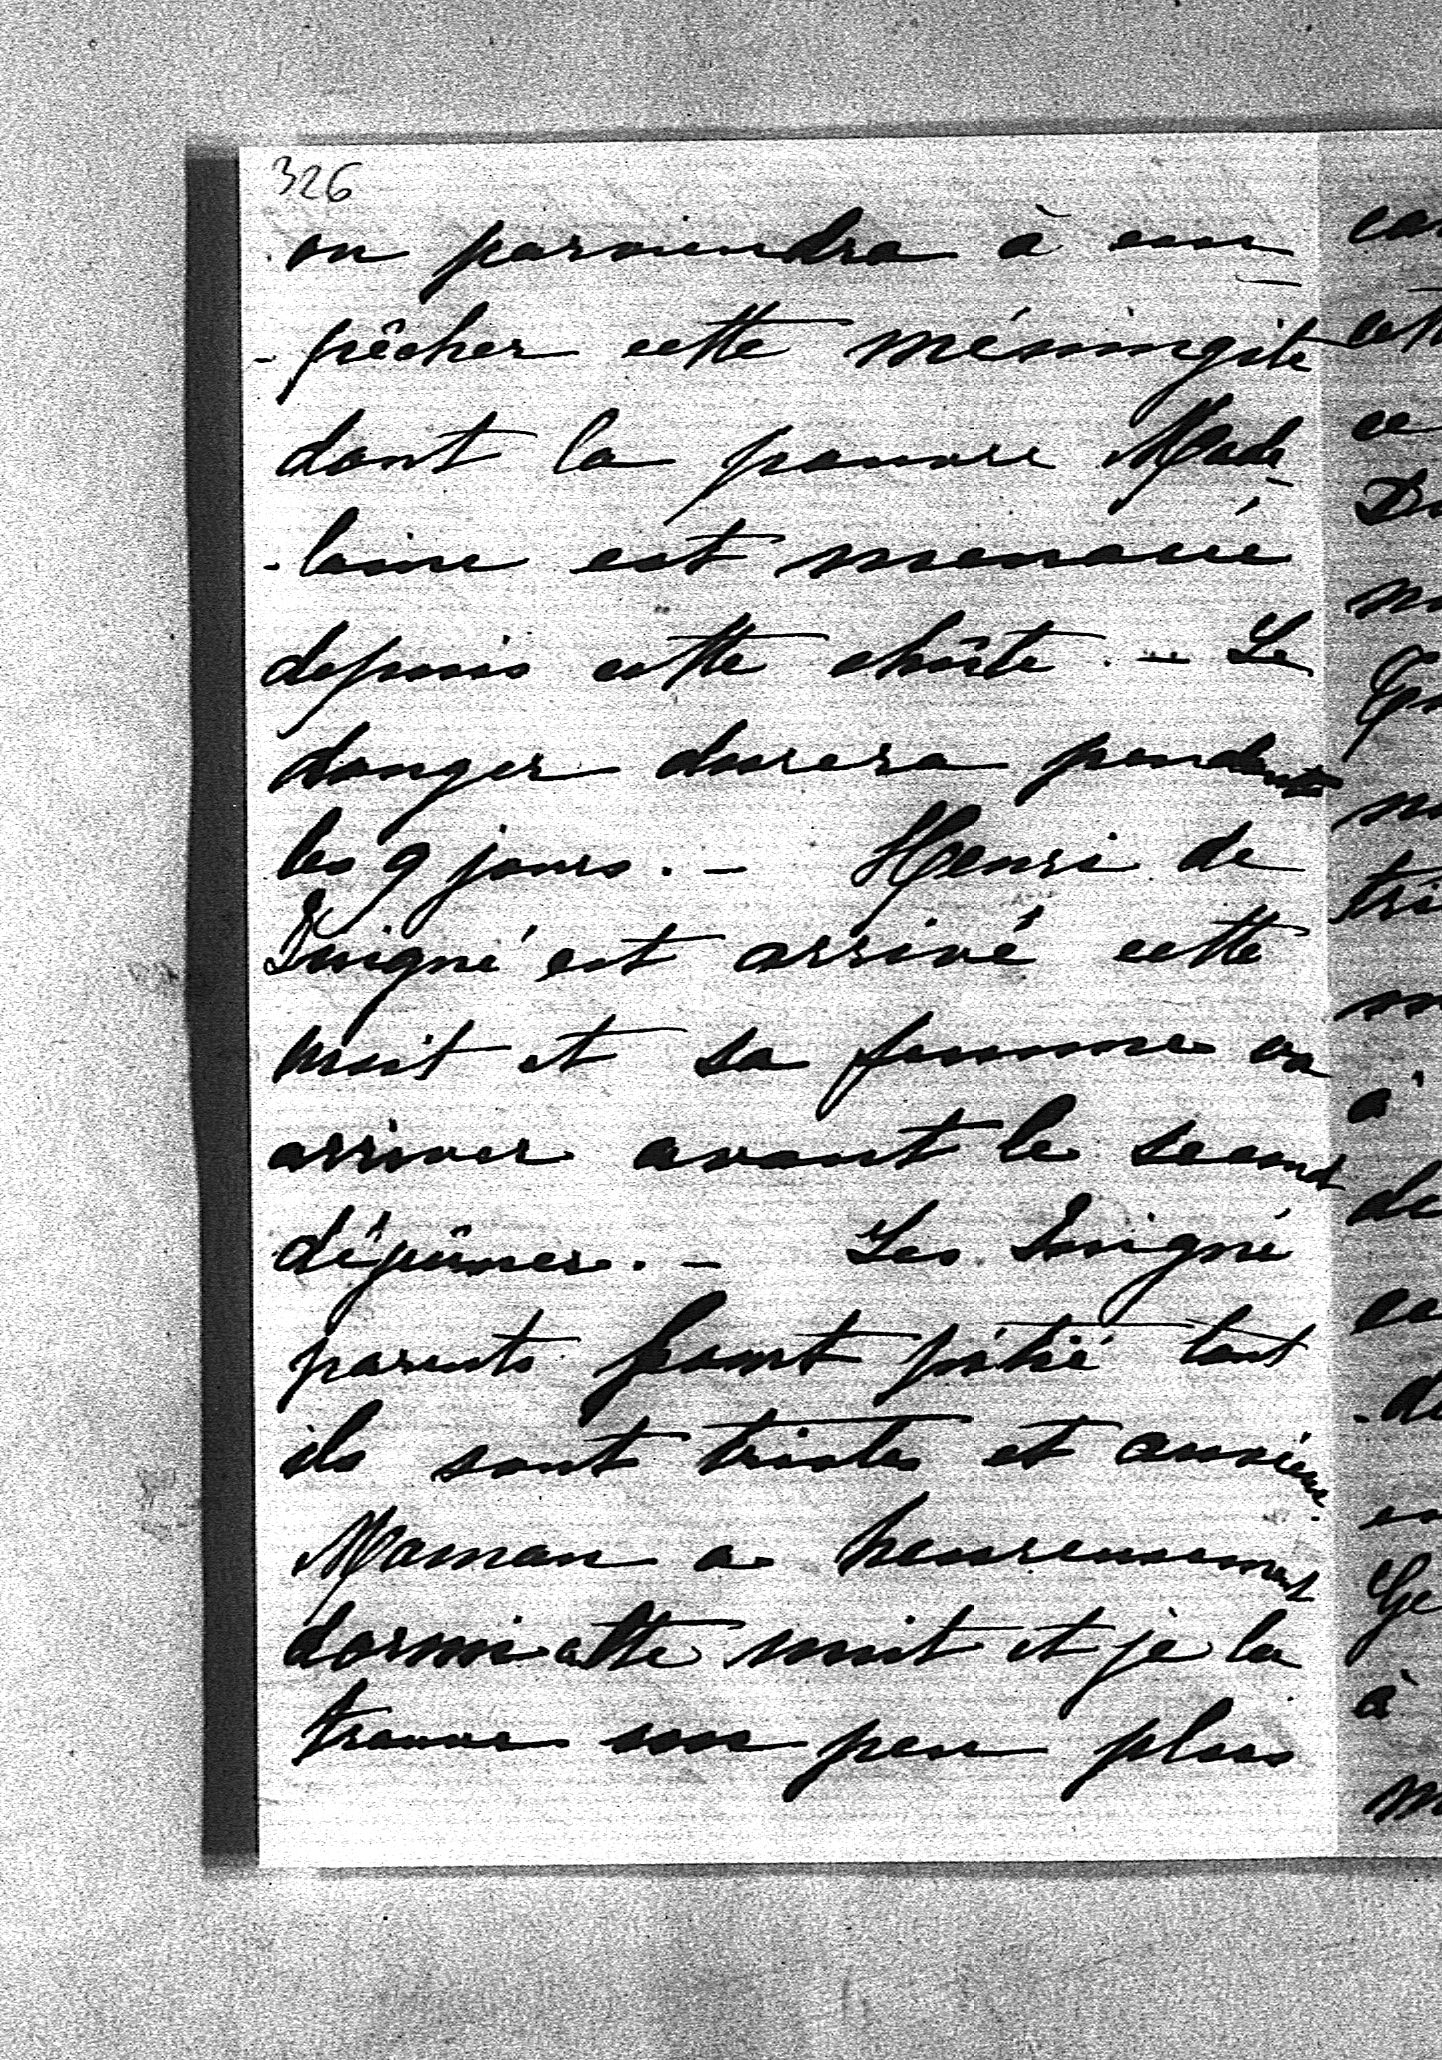 326
on parviendra à em
-pêcher cette méningite
dont la pauvre Made
-laine est menacée
depuis cette chûte. - Le
danger durera pendant
les 9 jours. - Henri de
Juigné est arrivé cette
nuit et sa femme va
arriver avant le second
déjeûner. - Les Juigné
parents font pitié tant
ils sont tristes et anxieux.
Maman a heureusement
dormi cette nuit et je la
trouve un peu plus